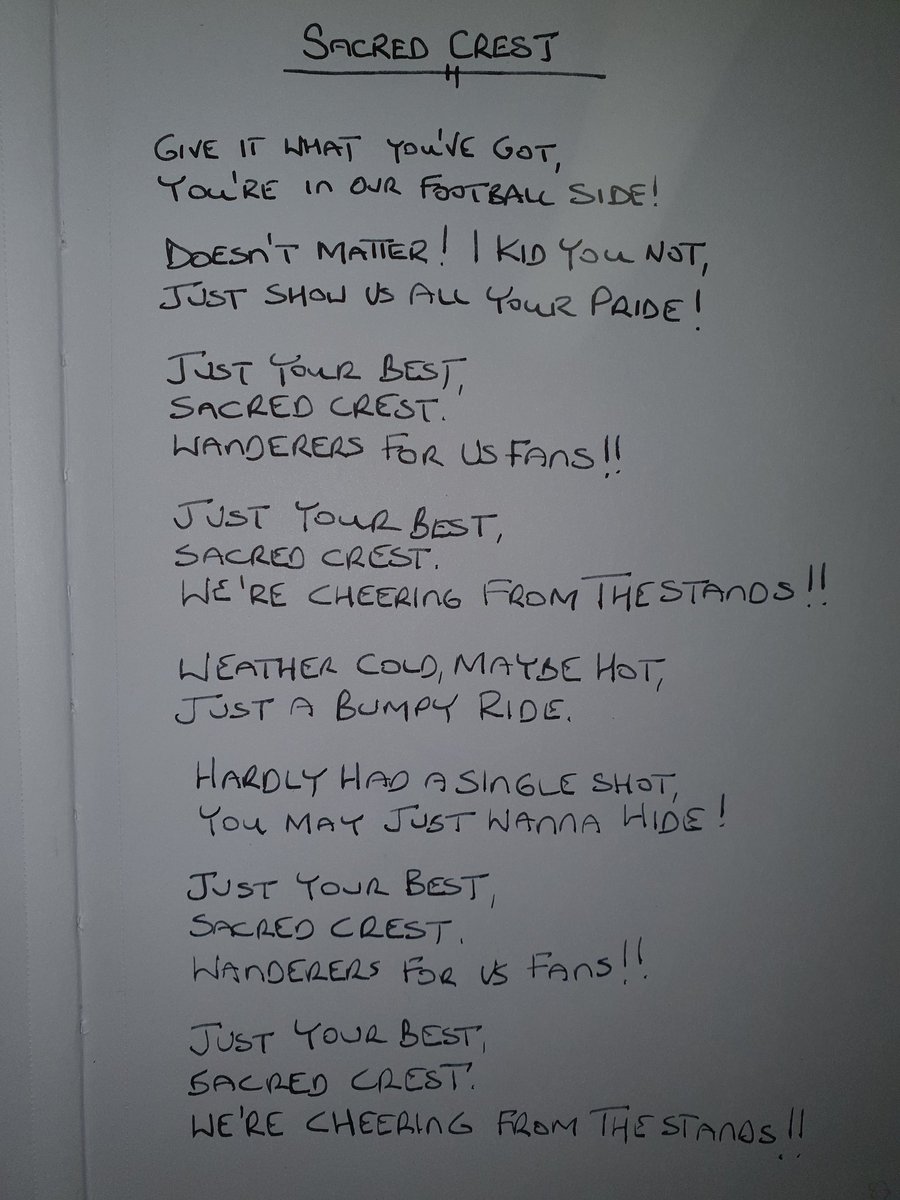 SACRED CREST
GIVE IT WHAT YOU'VE GOT,
YOU'RE IN OUR FOOTBALL SIDE!
DOESN'T MATTER! I KID YOU NOT,
JUST SHOW US ALL YOUR PRIDE!
JUST YOUR BEST,
SACRED CREST.
WANDERERS FOR US FANS!!
JUST YOUR BEST,
SACRED CREST.
WE'RE CHEERING FROM THE STANDS!!
WEATHER COLD, MAYBE HOT,
JUST A BUMPY RIDE.
HARDLY HAD A SINGLE SHOT,
YOU MAY JUST WANNA HIDE!
JUST YOUR BEST,
SACRED CREST.
WANDERERS FOR US FANS!!
JUST YOUR BEST,
SACRED CREST.
WE'RE CHEERING FROM THE STANDS!!